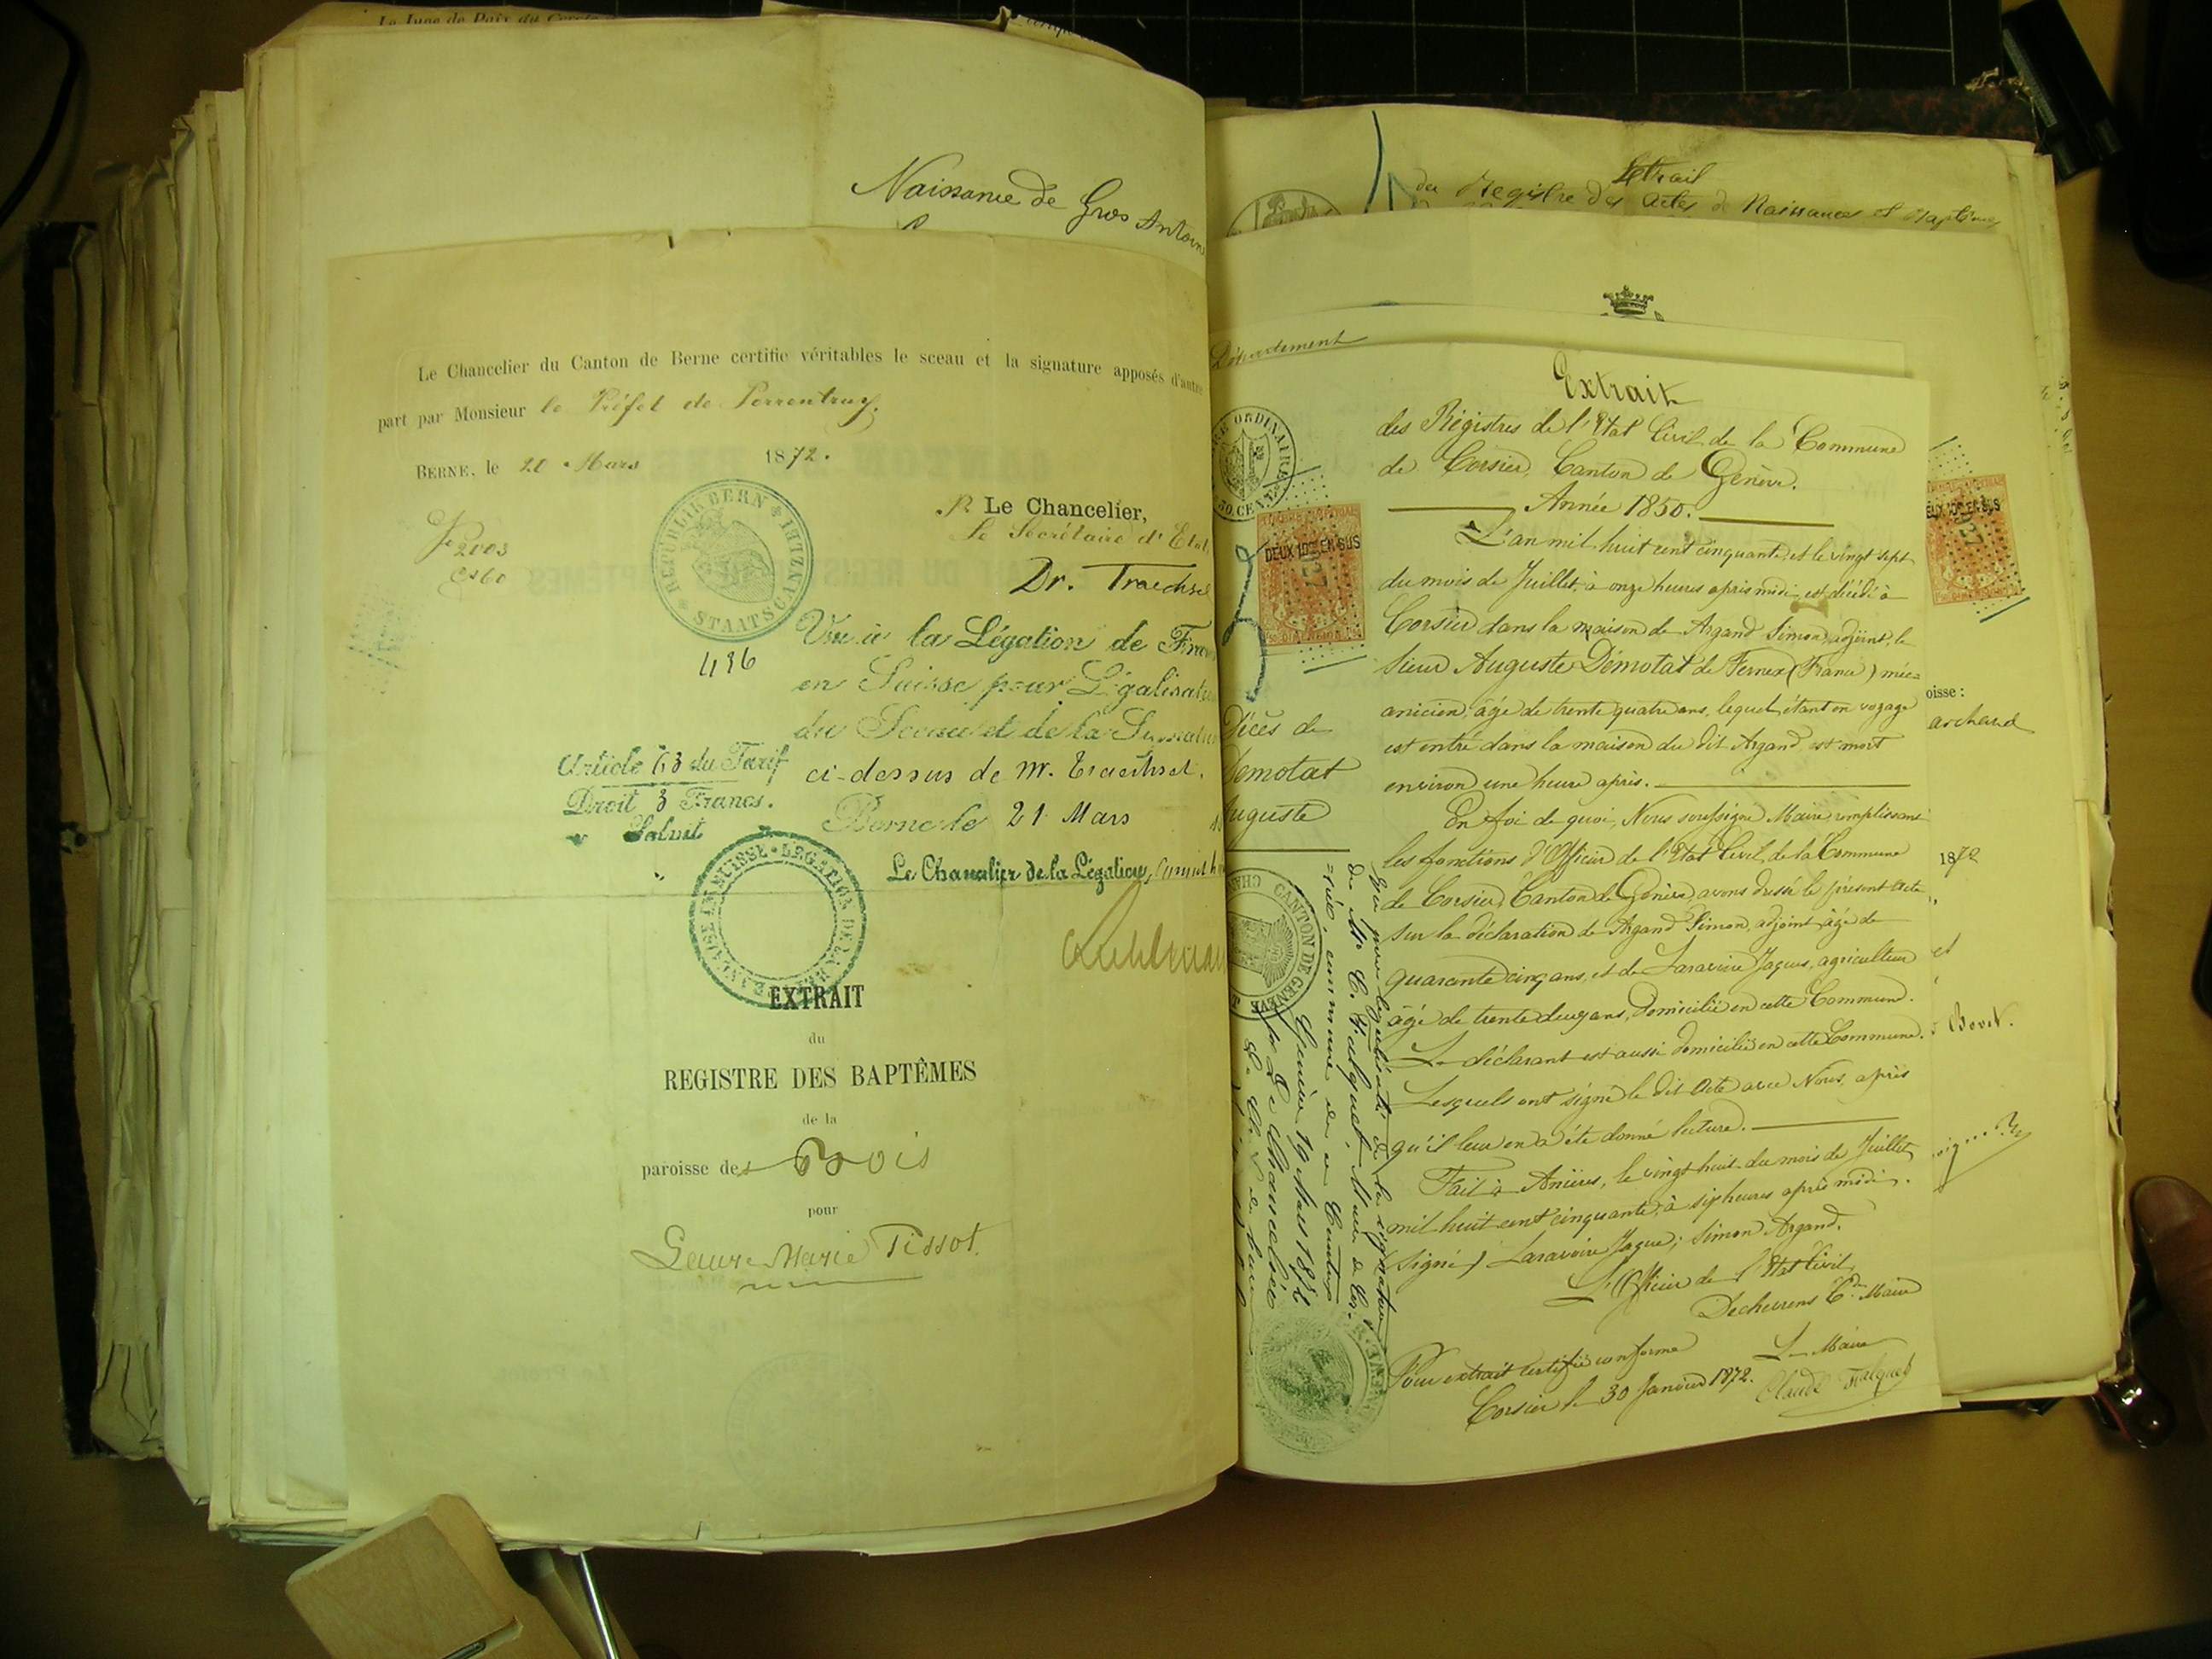 Le Juge de Paix du Cercle
Naissance de Gros Antoine
Le Chancelier du Canton de Berne certifie véritables le sceau et la signature apposés d'autre
part par Monsieur le Préfet de Porrentruy.
BERNE, le 20 Mars 1872.
Le Chancelier,
Le Secrétaire d'Etat,
Dr. Traechsel
2003
REPUBLIK BERN
STAATSKANZLEI
496
Vu à la Légation de France
en Suisse pour Légalisation
du Sceau et de la Signature
ci-dessus de M. Traechsel.
Article 63 du Tarif
Droit 3 Francs.
Berne le 21 Mars
Le Chancelier de la Légation,
EXTRAIT
du
REGISTRE DES BAPTÊMES
de la
paroisse des Bois
pour
Laure Marie Tissot.
Extrait
du Registre des actes de Naissances et Baptêmes
Département
Extrait
des Régistres de l'Etat Civil de la Commune
de Corsier, Canton de Genève.
Année 1850.
L'an mil huit cent cinquante, et le vingt sept
du mois de Juillet, à onze heures après midi est décédé à
Corsier dans la maison de Argand Simon, adjoint, le
Sieur Auguste Démotat de Fernex (France) méc=
anicien, âgé de trente quatre ans, lequel étant en voyage
est entré dans la maison du dit Argand est mort
environ une heure après.
En foi de quoi, Nous soussigné Maire remplissant
les fonctions d'Officier de l'Etat Civil de la Commune
de Corsier, Canton de Genève, avons dressé le présent acte
sur la déclaration de Argand Simon, adjoint âgé de
quarante cinq ans, et de Laravoire Jaques, agriculteur
âgé de trente deux ans, domicilié en cette Commune.
Le déclarant est aussi domicilié en cette Commune.
Lesquels ont signé le dit Acte avec Nous, après
qu'il leur en a été donné lecture.
Fait à Anières, le vingt huit du mois de Juillet
mil huit cent cinquante, à six heures après midi.
Signé) Laravoire Jaque; Simon Argand.
L'Officier de l'Etat Civil,
Decherrens Cd. Maire
Pour extrait certifié conforme
Corsier le 30 Janvier 1872.
Le Maire
Claude Falquet
Décès de
Démotat
Auguste
DEUX 10es EN SUS
CANTON DE GENEVE
Vu pour légalisation de la signature
de Mr C. Falquet, Maire de Cor=
sier, commune de ce Canton
Genève 19 Mars 1872
DEUX 10es EN SUS
oisse :
archand
1872
et